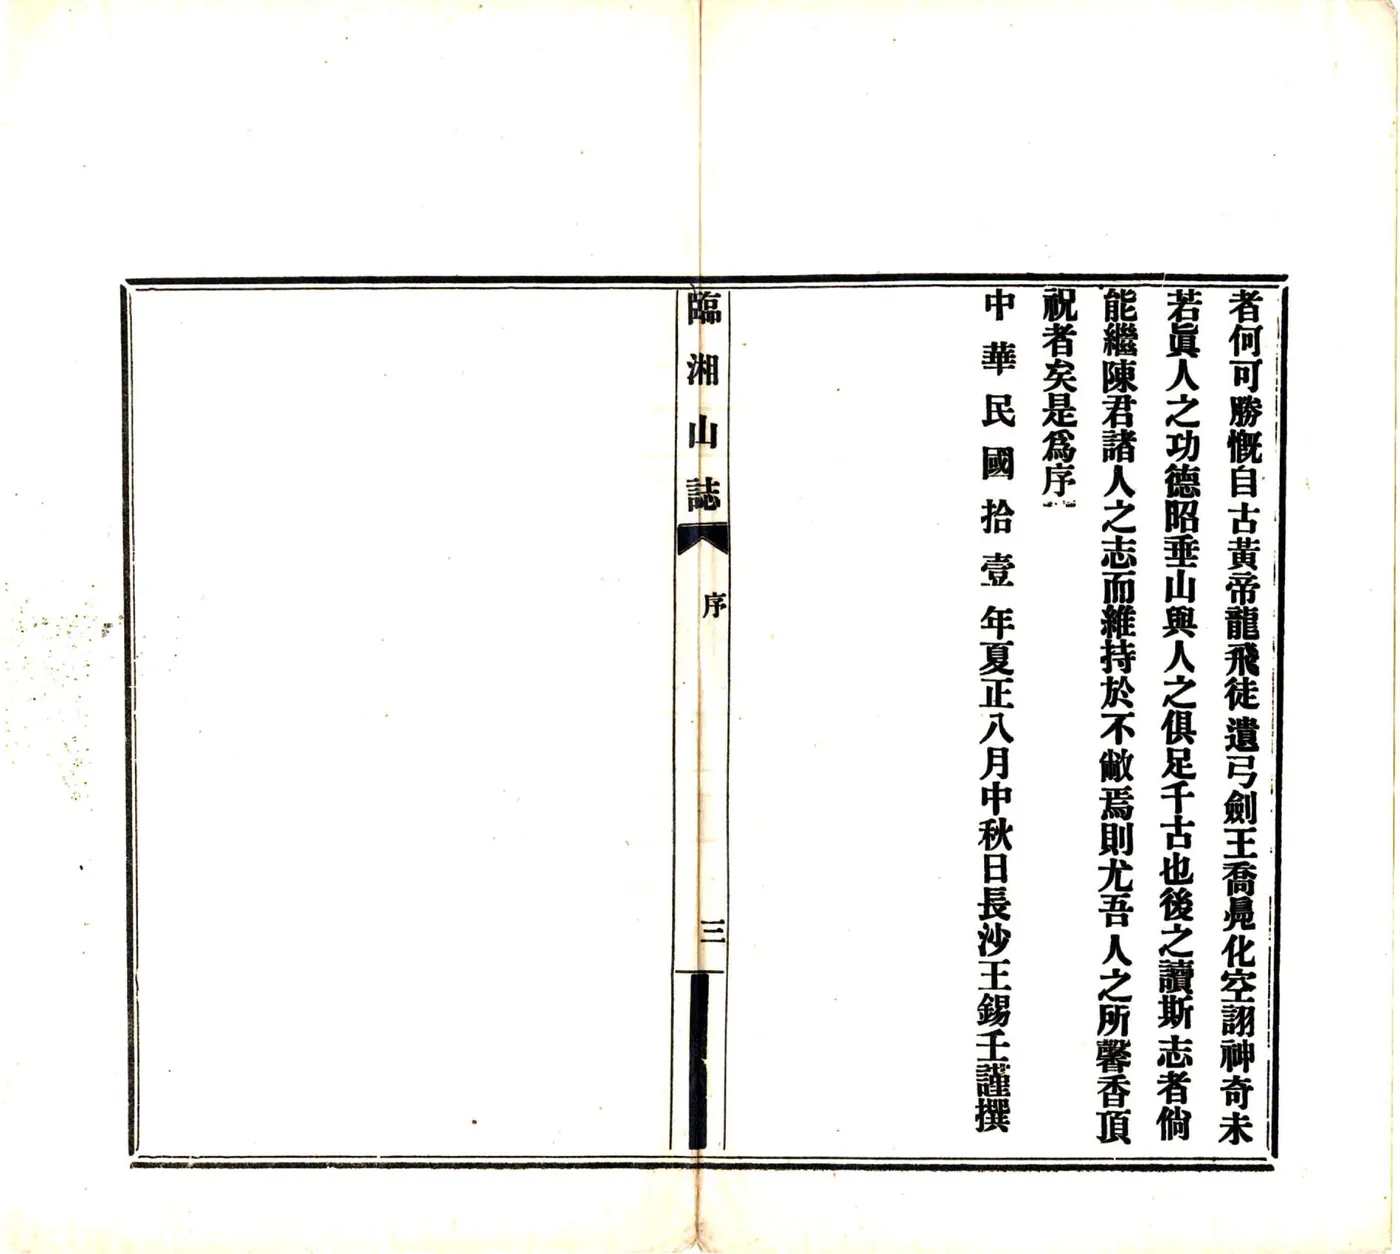 者何可勝慨自古黃帝龍飛徒遺弓劍王喬鳧化空詡神奇未
若眞人之功德昭垂山與人之俱足千古也後之讀斯志者倘
能繼陳君諸人之志而維持於不敝焉則尤吾人之所馨香頂
祝者矣是爲序
中華民國拾壹年夏正八月中秋日長沙王錫壬謹撰
臨湘山誌
序
三